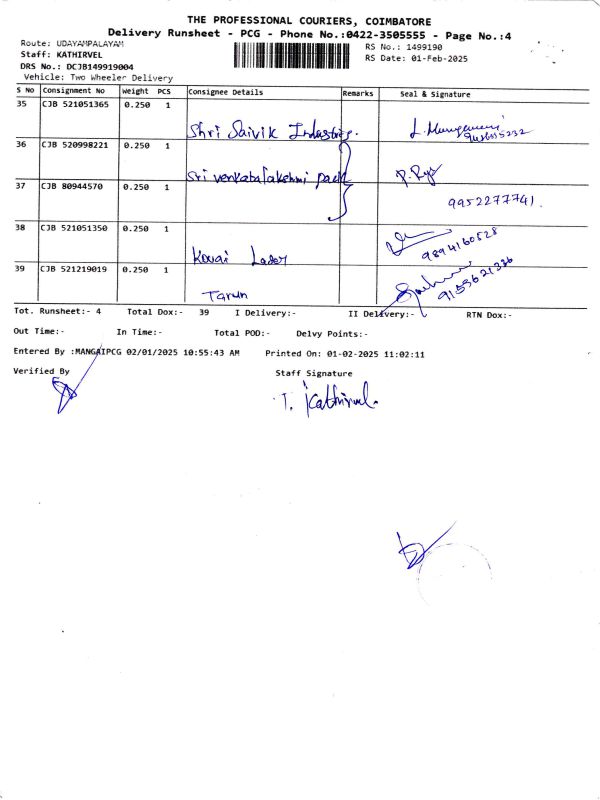 THE PROFESSIONAL COURIERS, COIMBATORE
Delivery Runsheet - PCG - Phone No.:0422-3505555 - Page No.:4
Route: UDAYAMPALAYAM
RS No.: 1499190
Staff: KATHIRVEL
RS Date: 01-Feb-2025
DRS No.: DCJB149919004
Vehicle: Two Wheeler Delivery
S No Consignment No Weight PCS Consignee Details Remarks Seal & Signature
35 CJB 521051365 0.250 1
Shri Saivik Industries.
36 CJB 520998221 0.250 1
Sri venkatalakshmi pack
37 CJB 80944570 0.250 1
9952277741.
38 CJB 521051350 0.250 1
Kovai Laser 9894160528
39 CJB 521219019 0.250 1
Tarun
Tot. Runsheet:- 4 Total Dox:- 39 I Delivery:- II Delivery:- RTN Dox:-
Out Time:- In Time:- Total POD:- Delvy Points:-
Entered By :MANGAIPCG 02/01/2025 10:55:43 AM Printed On: 01-02-2025 11:02:11
Verified By Staff Signature
T. Kathirvel.